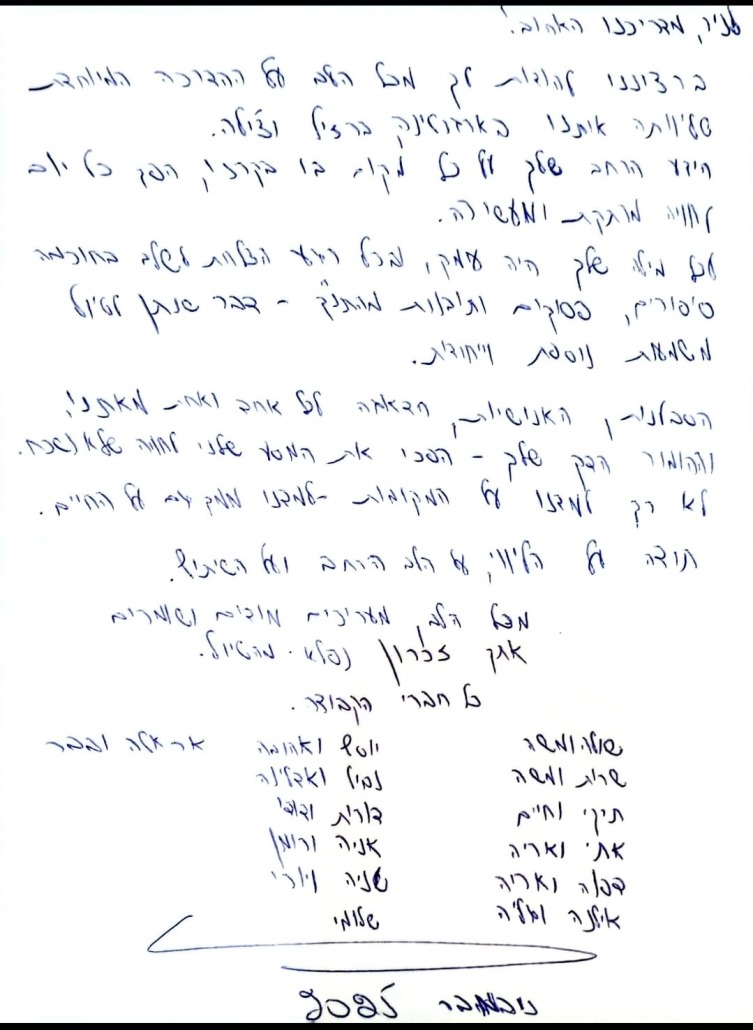 מדריכנו האהוב!
ברצוננו להודות לך מכל הלב על ההדרכה המיוחדת
שליוותה איתנו בארגנטינה ברזיל וצ'ילה.
הידע הרחב שלך על כל מקום בו ביקרנו, הפך כל יום
לחוויה מרתקת ומעשירה.
לכל מילה שלך היה עומק, ובכל רגע הצלחת לשלב בחוכמה
סיפורים, פסוקים ותובנות מהתנ"ך - דבר שנתן לטיול
משמעות נוספת וייחודית.
הסבלנות, האנושיות, הדאגה לכל אחד ואחת מאתנו,
וההומור הדק שלך - הפכו את המסע שלנו לחוויה שלא נשכח.
לא רק למדנו על המקומות - למדנו ממך גם על החיים.
תודה על הליווי, על הלב הרחב ועל השיתוף.
מכל הלב, מעריכים מודים ושומרים
אתך זכרון נפלא מהטיול.
כל חברי הקבוצה.
שולה ומשה
שרית ומשה
תיקי וחיים
אתי ואריה
דפנה ואריה
אילנה
יוסף ואהובה
נביל ואדלינה
דורית ודודי
אניה ורומן
שלומי
אראלה
נובמבר 2025